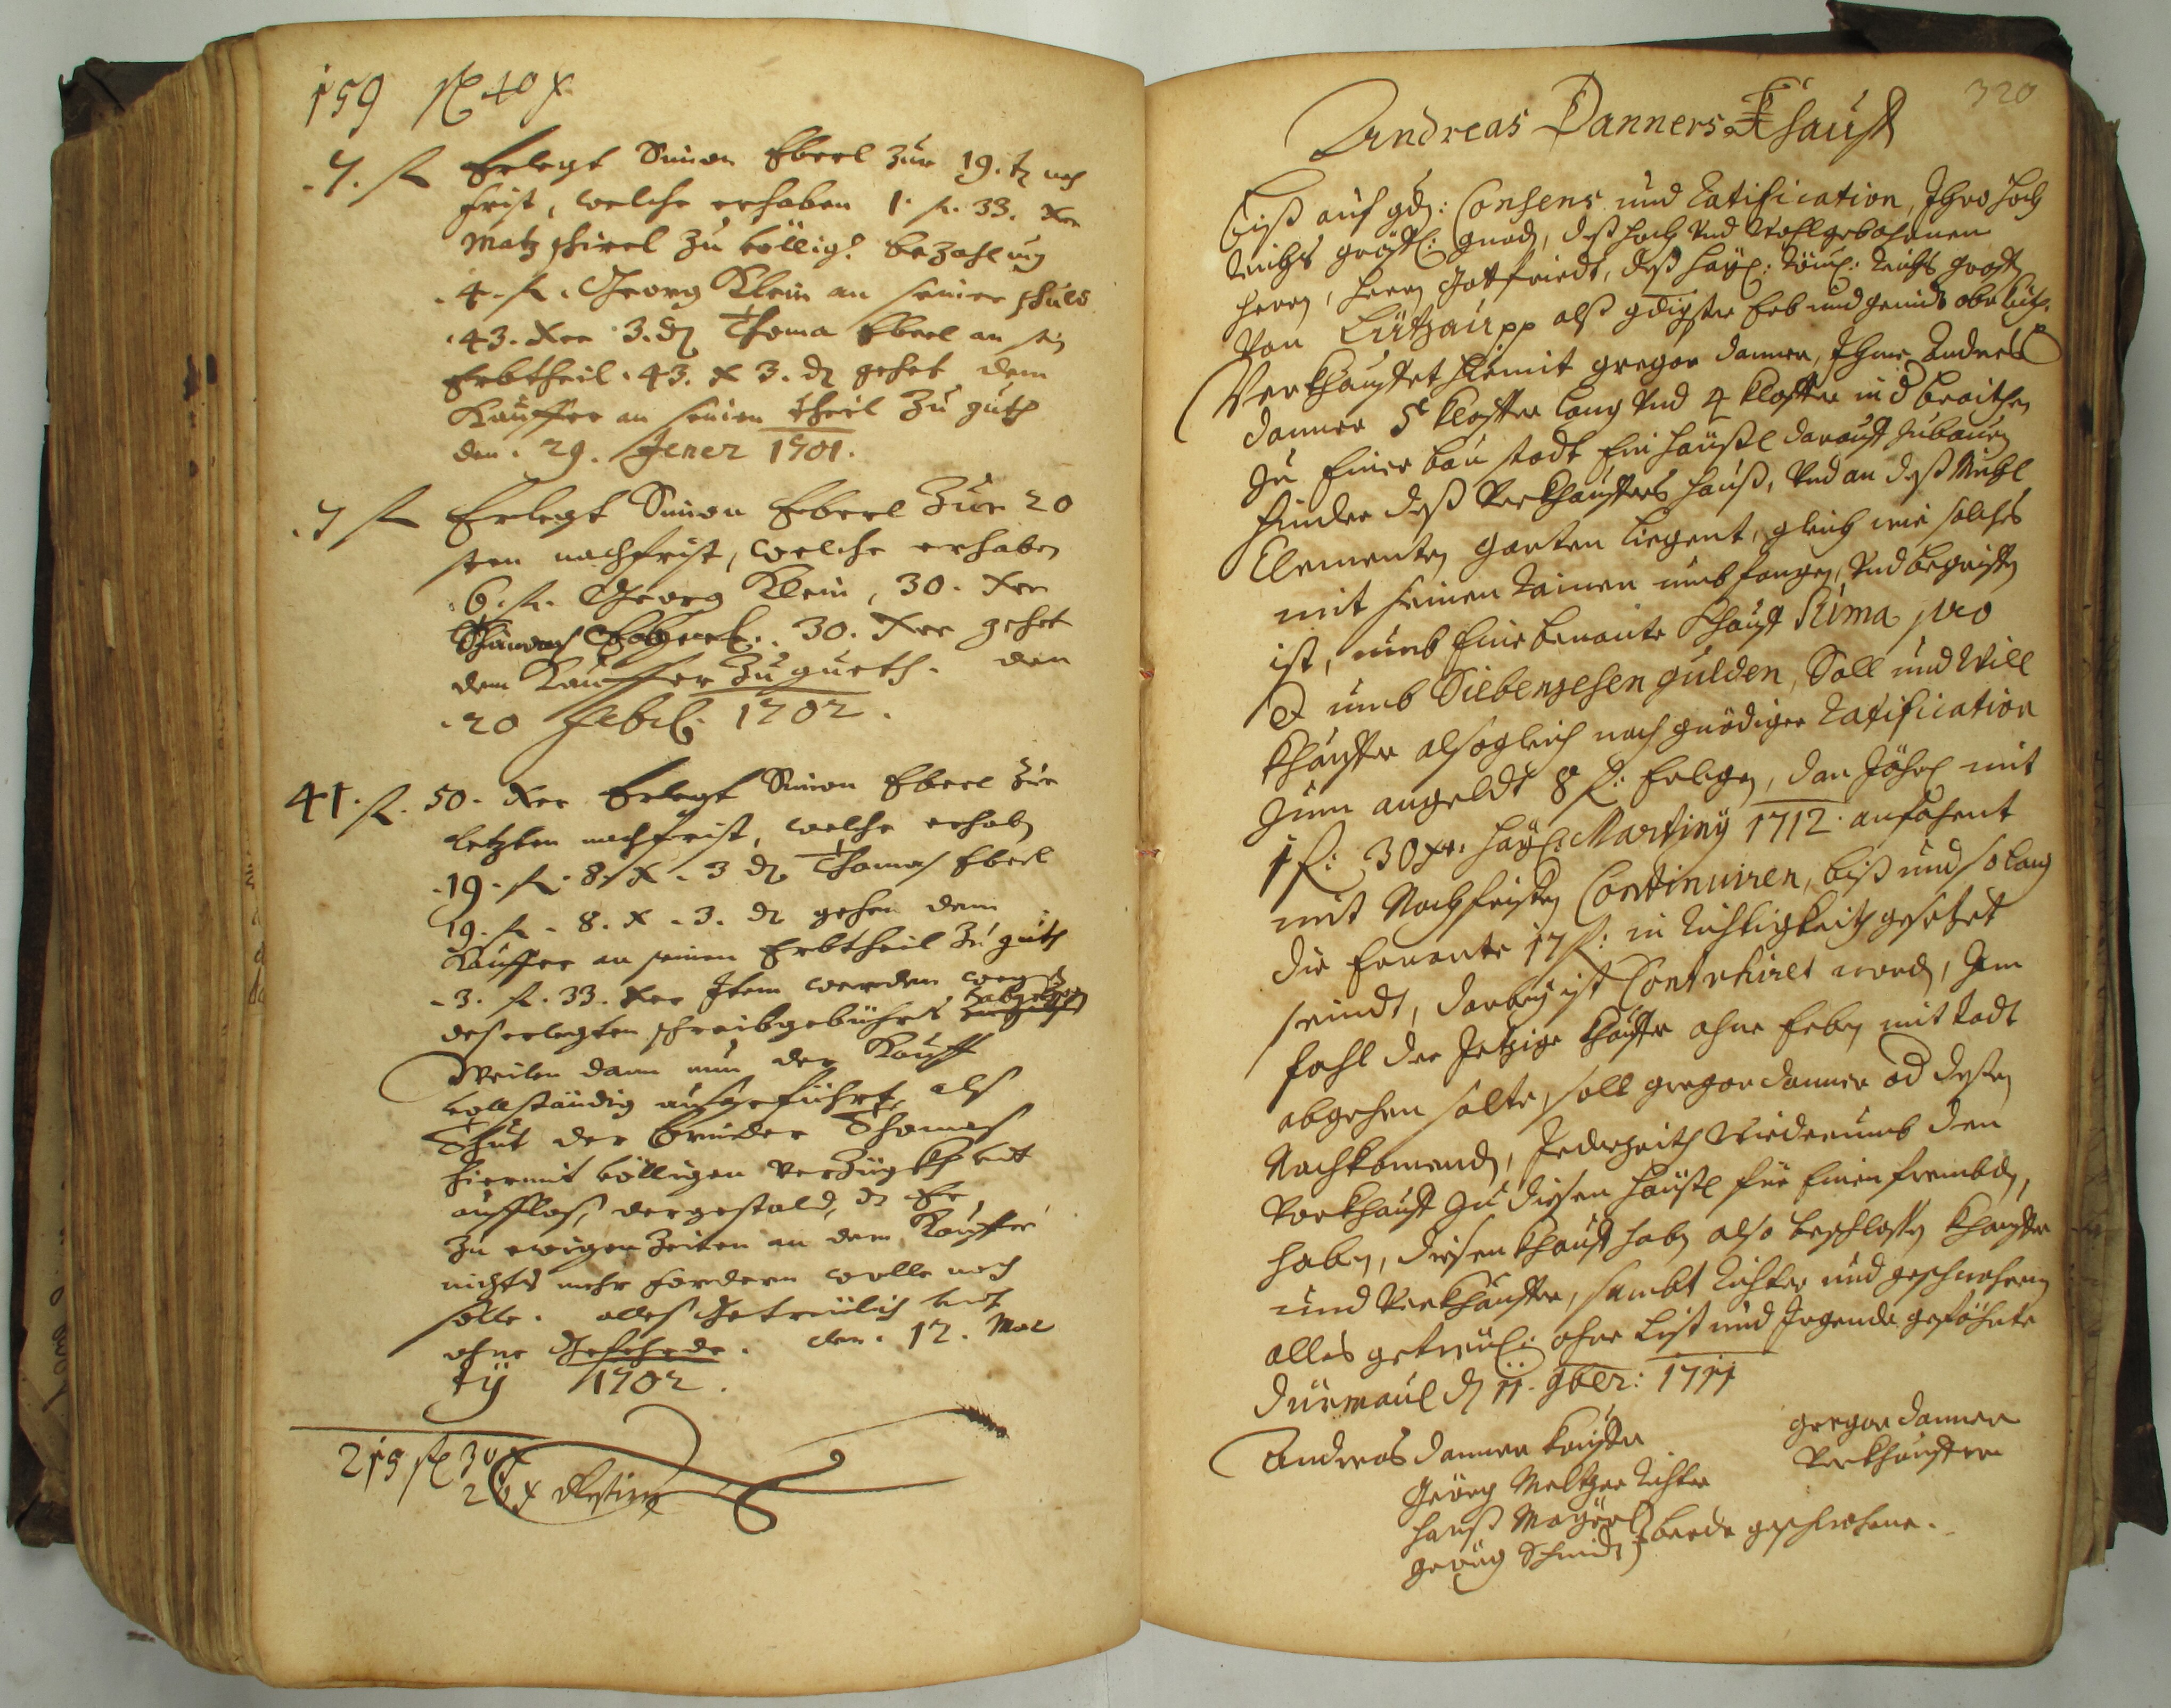 159 fl 40 x
7. fl Erlegt Simon Eberl zur 19. t nach
frist, welche erhaben 1. fl. 33. Xer
Matz zu völlig. bezahlung
4. fl. Georg Klein an seiner schuld
43. Xer 3. dl Thoma Eberl an sein
Erbtheil. 43. x 3. dl gehet dem
Kauffer an seinen theil zu guth
den. 29. Jener 1701.
7 fl Erlegt Simon Eberl zur 20
sten nachfrist, welche erhaben
6. fl. Georg Klein, 30. Xer
30. Xer gehet
dem Kauffer zu gueth. den
20 Febr. 1702.
41. fl. 50. Xer Erlegt Simon Eberl zur
letzten nachfrist, welche erhaben
19. fl. 8. x. 3 dl Thomas Eberl
19. fl. 8. x. 3. dl gehen dem
Kauffer an seinen Erbtheil zu guth
3. fl. 33. Xer Item werden wegen
des erlegten schreibgebührs
Weilen dann nun der Kauff
vollständig ausgeführt, als
Thut der bruder Thomas
hiermit völligen Verzug und
aufflas, dergestald, dz Er
zu ewigen Zeiten an dem Kauffer
nichts mehr fordern wolle noch
solle. alles Getreulich und
ohne Gefehrde. den. 12. Mar
ty 1702.
219 fl 30 x
26 x
320
Andreas Danners Khauff
Biß auf gdl: Consens und Ratification, Ihro Hoch
Reichs gräffl: gnad, deß hoch und Wohlgebohrnen
Herrn, Herrn Gottfriedt, deß Hayl: Röm: Reichs Graffen
Von Lützau pp alß gdigster Erb und grunds obrikeit,
Verkhauffet hiemit gregor danner, Ihme Andreaß
danner 5 Kloffter lang und 4 Kloffter in d braithen
Zu Einer bau stadt Ein häußl darauff zubauen
hinder deß Verkhauffers hauß, und an deß Michl
Clementen garten liegent, gleich wie solches
mit seinen Rainen umbfangen, und begriffen
ist, umb Eine benante Khauff Suma pro
umb Siebenzehen gulden, Soll und Will
Khauffer alsogleich nach gnädiger Ratification
zum angeldt 8 fl: Erlegen, dan Jährl mit
1 fl: 30 xr: Hayl: Martiny 1712. anfahent
mit Nachfristen Continuiren, biß und so lang
die Ernante 17 fl: in Richtigkeith gesetzet
seindt, darbey ist Contrahiret word, Im
fahl der Jetzige Khauffer ohne Erben mit Todt
abgehen solte, soll gregor danner od deßen
Nachkomend, Jederzeith Wiederumb den
Vorkhauff zu diesen häußl für Einen frembden,
haben, diesen Khauff haben also beschlossen Khauffer
und Verkhauffer, sambt Richter und geschwohrnen
alles getreul: ohne List und Irgende gefährte
Dürmaul d 11. 9ber: 1711
Andreas danner Kauffer
gregor danner
Verkhauffer
Georg Meltzer Richter
Hanß Mayerl
Georg Schmidt } beede geschwohrne.